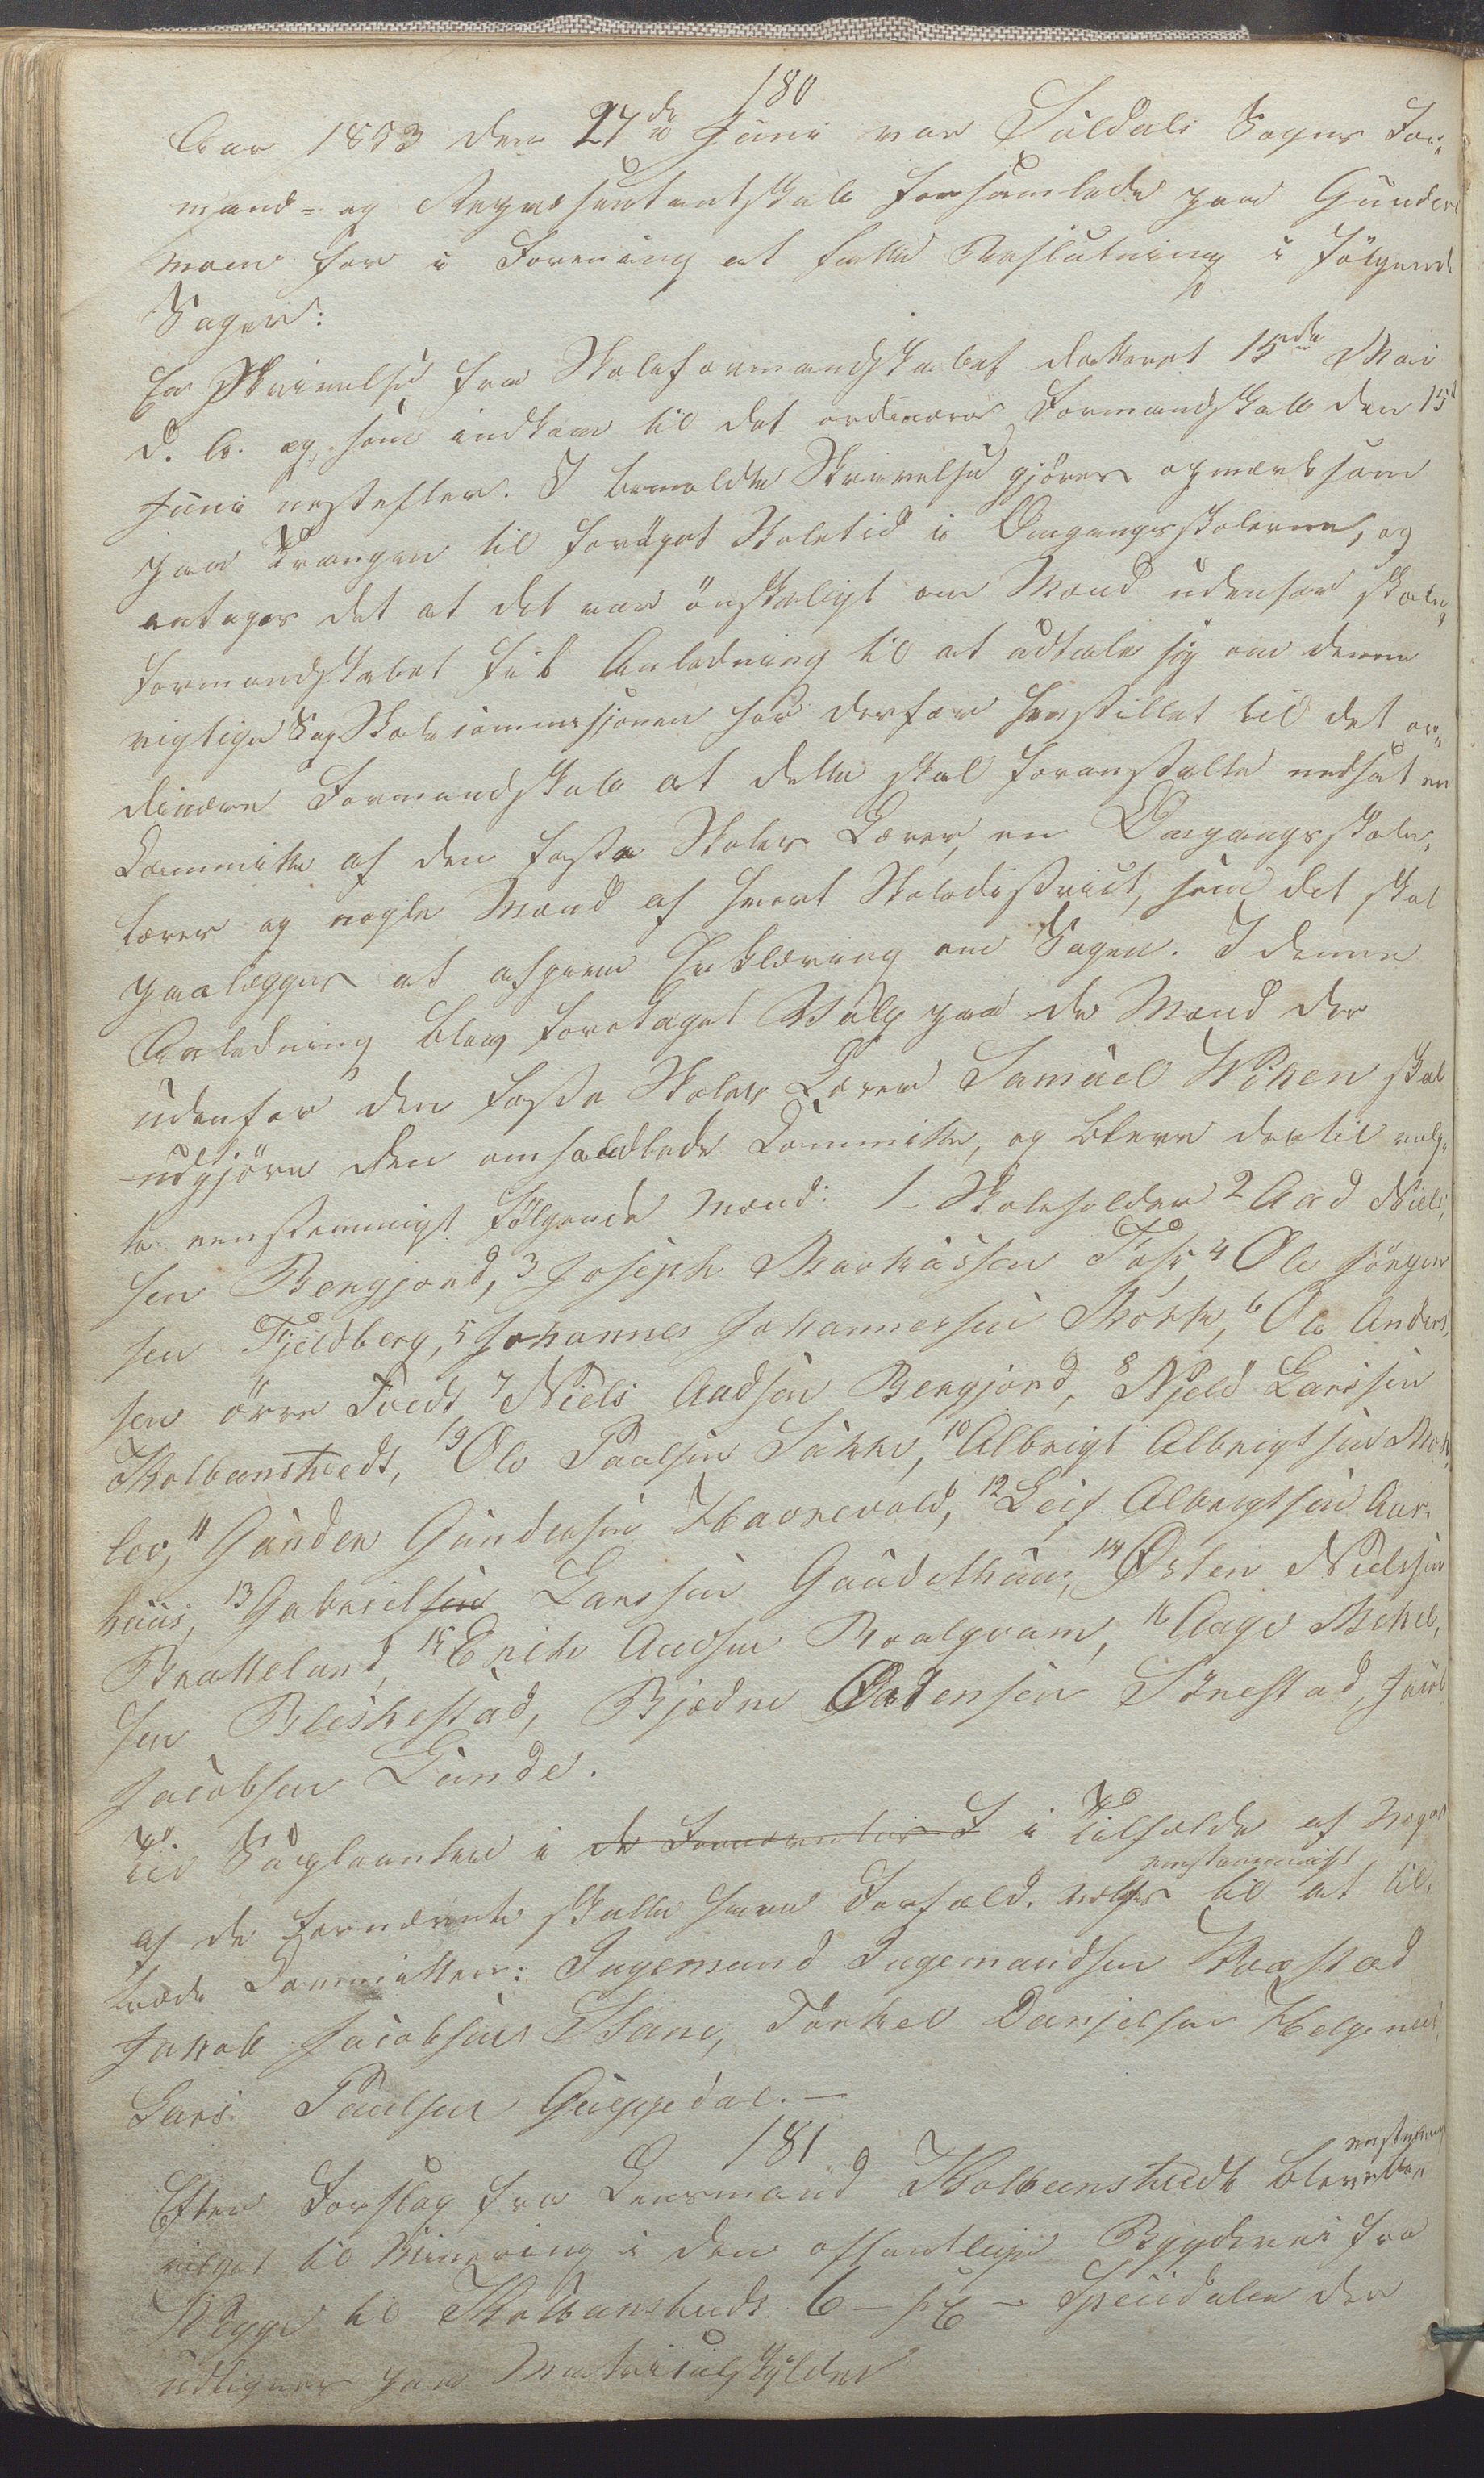 180
Aar 1853 den 27de Juni var Suldals Sogns For-
mand- og Repræsentantskab forsamlede paa Gunders
Moen for i Forening at fatte Beslutning i følgende
Sager:
En Skrivelse fra Skoleformandskabet dateret 15de Mai
d. A. og som indkom til det ordinære Formandskab den 15
Juni nestefter. I bemeldte Skrivelse gjøres opmærksom
paa Trangen til forøget Skoletid i Omgangsskolerne, og
antages det at det var ønskeligt om Mænd udenfor Skole-
formandskabet fik Anledning til at udtale sig om denne
vigtige Sag Skolecommisjonen har derfor henstillet til det or-
dinære Formandskab at dette skal foranstalte nedsat en
Committe af den faste Skoles Lærer, en Omgangsskole-
lærer og nogle Mænd af hvert Skoledistrict, som det skal
paalægges at afgive Erklæring om Sagen. I denne
Anledning blev foretaget Valg paa de Mænd der
udenfor den faste Skoles Lærer Samuel Viken skal
udgjøre den omhandlede Committe, og bleve dertil valg-
te eenstemmigt følgende Mænd: 1 Skoleholder 2 Aad Niels-
sen Bergjord, 3 Joseph Markussen Foss, 4 Ole Jørgen
sen Fjeldberg, 5 Johannes Johannessen Mork, 6 Ole Anders-
sen øvre Tvedt 7 Niels Aadsen Bergjord, 8 Njeld Larssen
Kolbenstvedt, 9 Ole Paulsen Sukke, 10 Albrigt Albrigtsen Mok-
lev, 11 Gunder Gundersen Havrevold, 12 Leif Albrigtsen Aar-
huus, 13 Gabriel Larssen 14 Østen Nielssen
Bratteland, 15 Erik Aadsen Roalqvam, 16 Aage Mikel-
sen Bleskestad, Bjødne Odtensen Sønestad, Jacob
Jacobsen Lunde.
Til Supleanter i i Tilfælde af Nogen
af de fornævnte skulle have Forfald. valgtes eenstemmigt til at til-
træde Committeen: Ingemund Ingemundsen Vaastad
Jakob Jacobsen Vaage, Torkel Danjelsen Helgenæs
Lars Paulsen Guggedal.—
181
Efter Forslag fra Lensmand Kolbenstvedt blev eenstemmig
vilget til Minering i den offentlige Bygdevei fra
Vegge til Kolbenstvedt 6 - sex - Speciedaler der
udlignes paa Matriculskylden